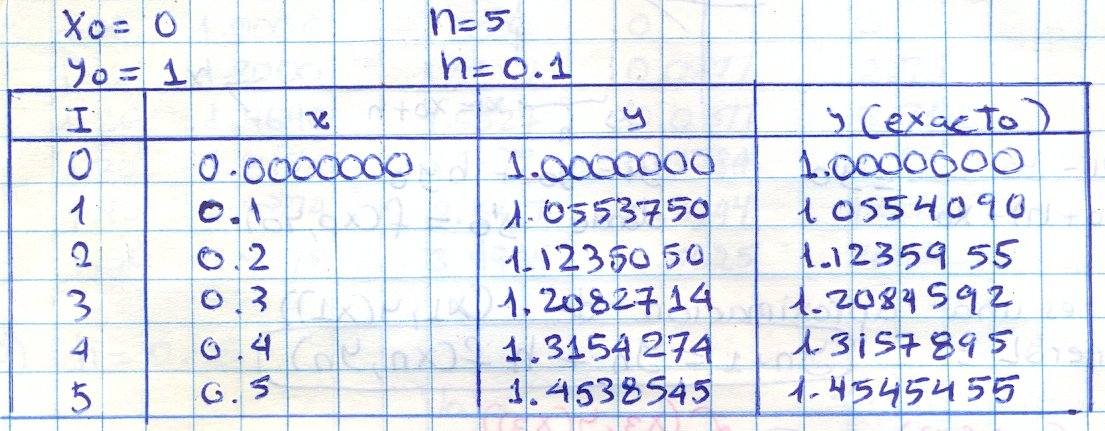 x0 = 0 n=5
y0 = 1 h=0.1
I x y y (exacto)
0 0.0000000 1.0000000 1.0000000
1 0.1 1.0553750 1 0554090
2 0.2 1.1235050 1.1235955
3 0.3 1.2082714 1.2084592
4 0.4 1.3154274 1.3157895
5 0.5 1.4538545 1.4545455